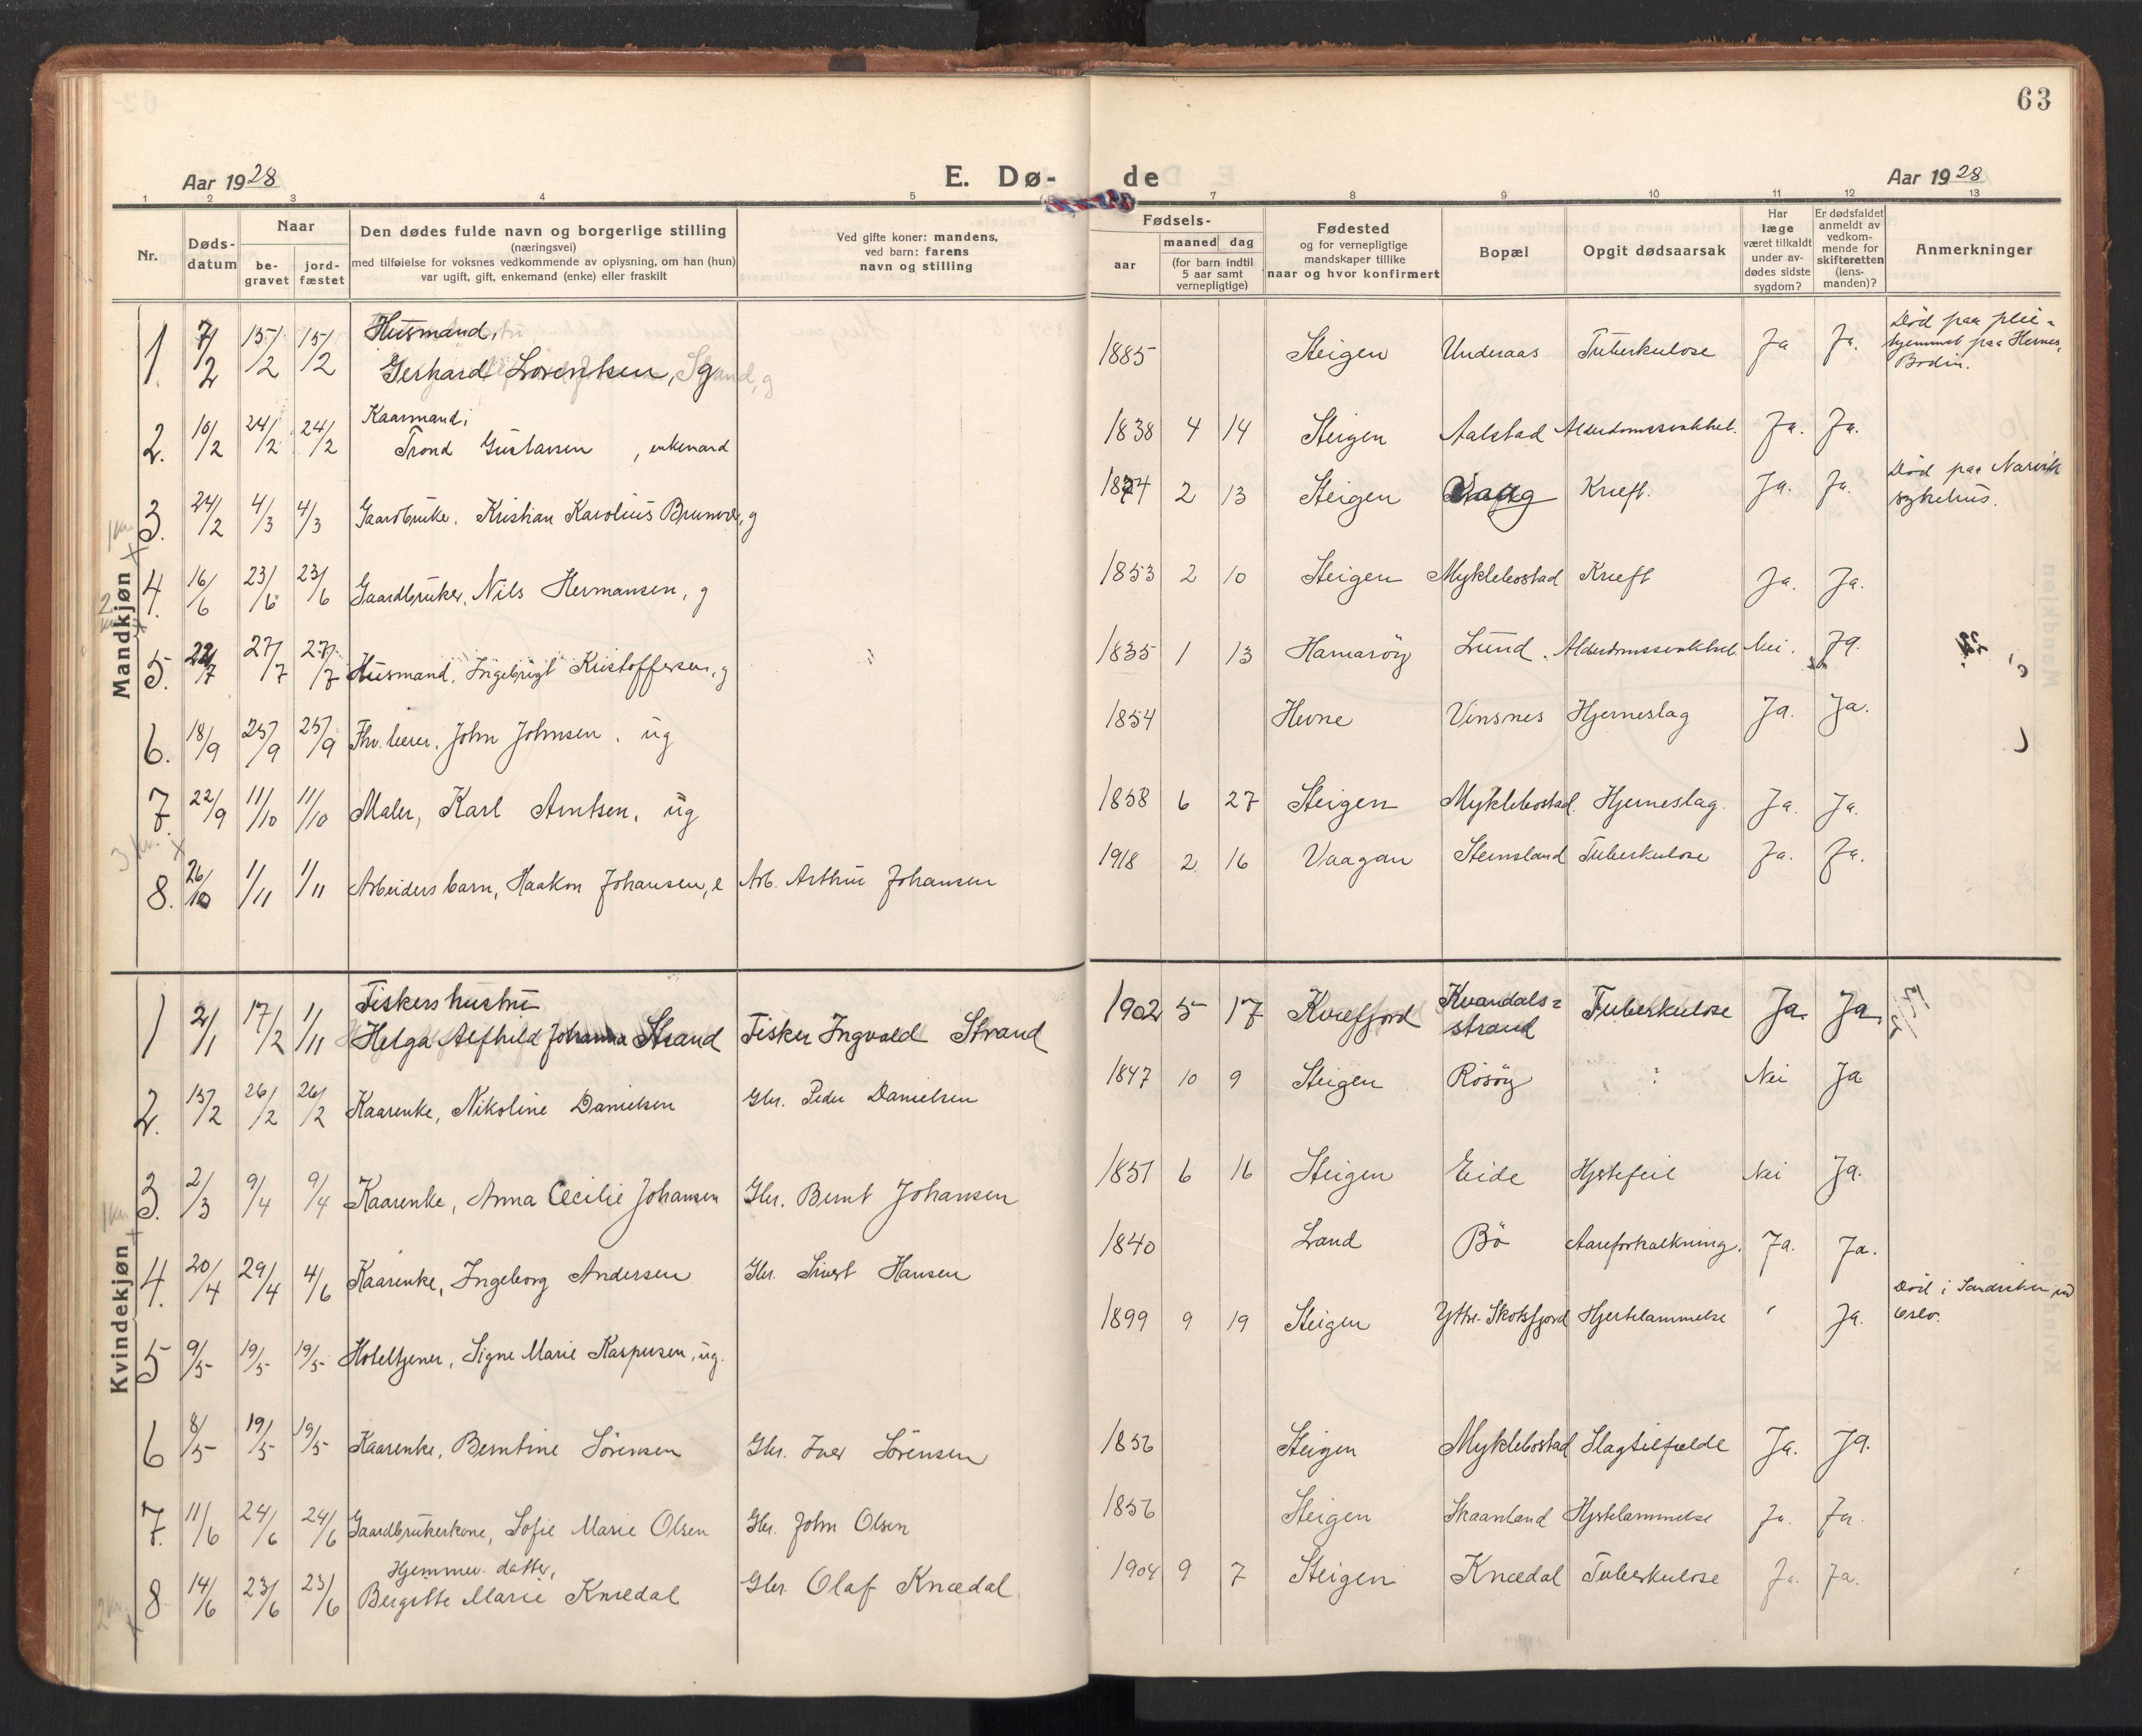 63
Aar 1928 E. Dø- de Aar 1928
1 2 3 4 5 7 8 9 10 11 12 13
Nr.
Døds-
datum
Naar
be-
gravet
jord-
fæstet
Den dødes fulde navn og borgerlige stilling
(næringsvei)
med tilføielse for voksnes vedkommende av oplysning, om han (hun)
var ugift, gift, enkemand (enke) eller fraskilt
Ved gifte koner: mandens,
ved barn: farens
navn og stilling
Fødsels-
aar
maaned dag
(for barn indtil
5 aar samt
vernepligtige)
Fødested
og for vernepligtige
mandskaper tillike
naar og hvor konfirmert
Bopæl
Opgit dødsaarsak
Har
læge
været tilkaldt
under av-
dødes sidste
sygdom?
Er dødsfaldet
anmeldt av
vedkom-
mende for
skifteretten
(lens-
manden)?
Anmerkninger
Mandkjøn
Husmand,
1. 7/2 15/2 15/2 Gerhard Lorentsen, g 1885 Steigen Underaas Tuberkulose Ja Ja.
Død paa plie-
hjemmet paa Hernes,
Bodin.
Kaarmand;
2. 10/2 24/2 24/2 Trond Gustavsen, enkemand 1838 4 14 Steigen Aalstad Alderdomssvakhet. Ja. Ja.
3. 24/2 4/3 4/3 Gaardbruke. Kristian Karolius Brunvær, g 1874 2 13 Steigen Kræft. Ja. Ja.
Død paa Narvik
sykehus.
4. 16/6 23/6 23/6 Gaardbruker, Nils Hermansen, g 1853 2 10 Steigen Myklebostad Kræft Ja. Ja.
5. 22/7 27/7 27/7 Husmand, Ingebrigt Kristoffersen, g 1835 1 13 Hamarøy Lund. Alderdomssvakhet Nei. Ja.
6. 18/9 25/9 25/9 Fhv. lærer, John Johnsen, ug 1854 Hevne Vinsnes Hjerneslag Ja. Ja.
7. 22/9 11/10 11/10 Maler, Karl Arntsen, ug 1858 6 27 Steigen Myklebostad. Hjerneslag. Ja. Ja.
8. 26/10 1/11 1/11 Arbeidersbarn, Haakon Johansen, e Arb. Arthur Johansen 1918 2 16 Vaagan Steinsland Tuberkulose Ja. Ja.
Kvindekjøn
Fiskers hustru
1 2/1 17/2 1/11 Helga Alfhild Johanna Strand Fisker Ingvald Strand 1902 5 17 Kvæfjord Kvandals=
strand Tuberkulose Ja. Ja.
2. 15/2 26/2 26/2 Kaarenke, Nikoline Danielsen Gbr. Peder Danielsen 1847 10 9 Steigen Røsøy ? Nei Ja
3. 2/3 9/4 9/4 Kaarenke, Anna Cecilie Johansen Gbr. Bernt Johansen 1851 6 16 Steigen Eide Hjertefeil Nei Ja.
4. 20/4 29/4 4/6 Kaarenke, Ingeborg Andersen Gbr. Sivert Hansen 1840 Land Bø Aareforkalkning. Ja. Ja.
5 9/5 19/5 19/5 Hoteltjener, Signe Marie Kaspersen, ug. 1899 9 19 Steigen Ytre-Skotsfjord Hjertelammelse Ja.
Død i Sandviken ved
Oslo.
6 8/5 19/5 19/5 Kaarenke, Berntine Sørensen Gbr. Iver Sørensen 1856 Steigen Myklebostad Slagtilfælde Ja. Ja.
7. 11/6 24/6 24/6 Gaardbrukerkone, Sofie Marie Olsen Gbr. John Olsen 1856 Steigen Skaanland Hjertelammelse Ja. Ja.
Hjemmev. datter,
8 14/6 23/6 23/6 Bergitte Marie Knædal Gbr. Olaf Knædal 1904 9 7 Steigen Knædal Tuberkulose Ja. Ja.